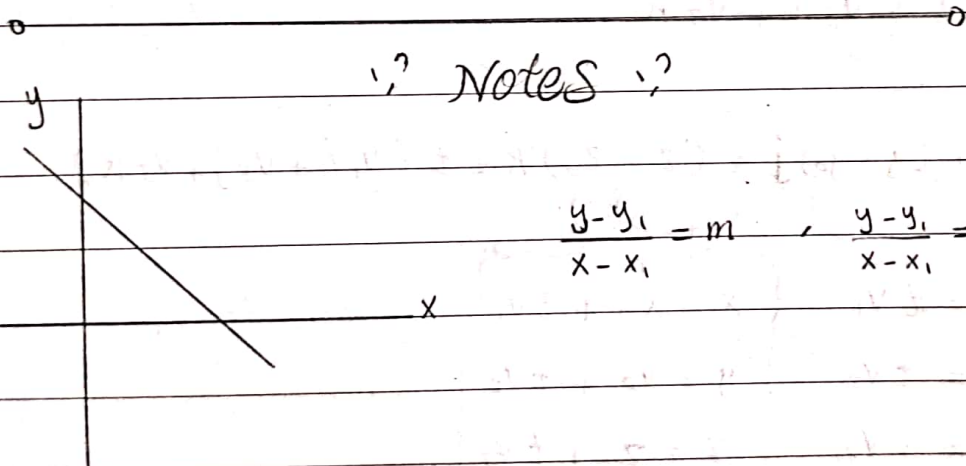 Notes
y
y-y₁/x-x₁ = m , y-y₁/x-x₁ =
x